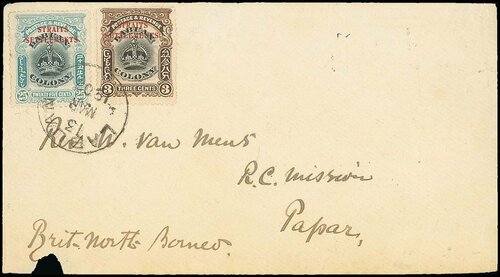 POSTAGE & REVENUE
STRAITS
SETTLEMENTS.
LABUAN
COLONY
25 TWENTY FIVE CENTS 25
POSTAGE & REVENUE
STRAITS
SETTLEMENTS.
LABUAN
COLONY
3 THREE CENTS 3
13
MAR
Rev. W. Van Mens
R.C. Mission
Papar,
Brit. North Borneo.